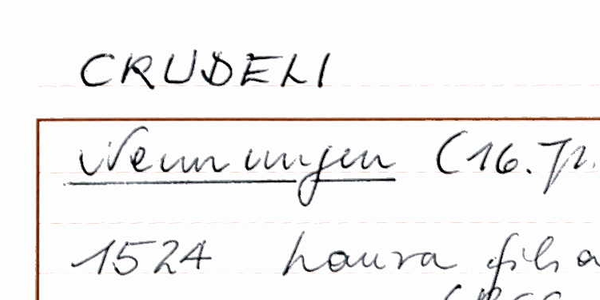 CRUDELI
Nennungen (16. Jh.
1524 Laura filia